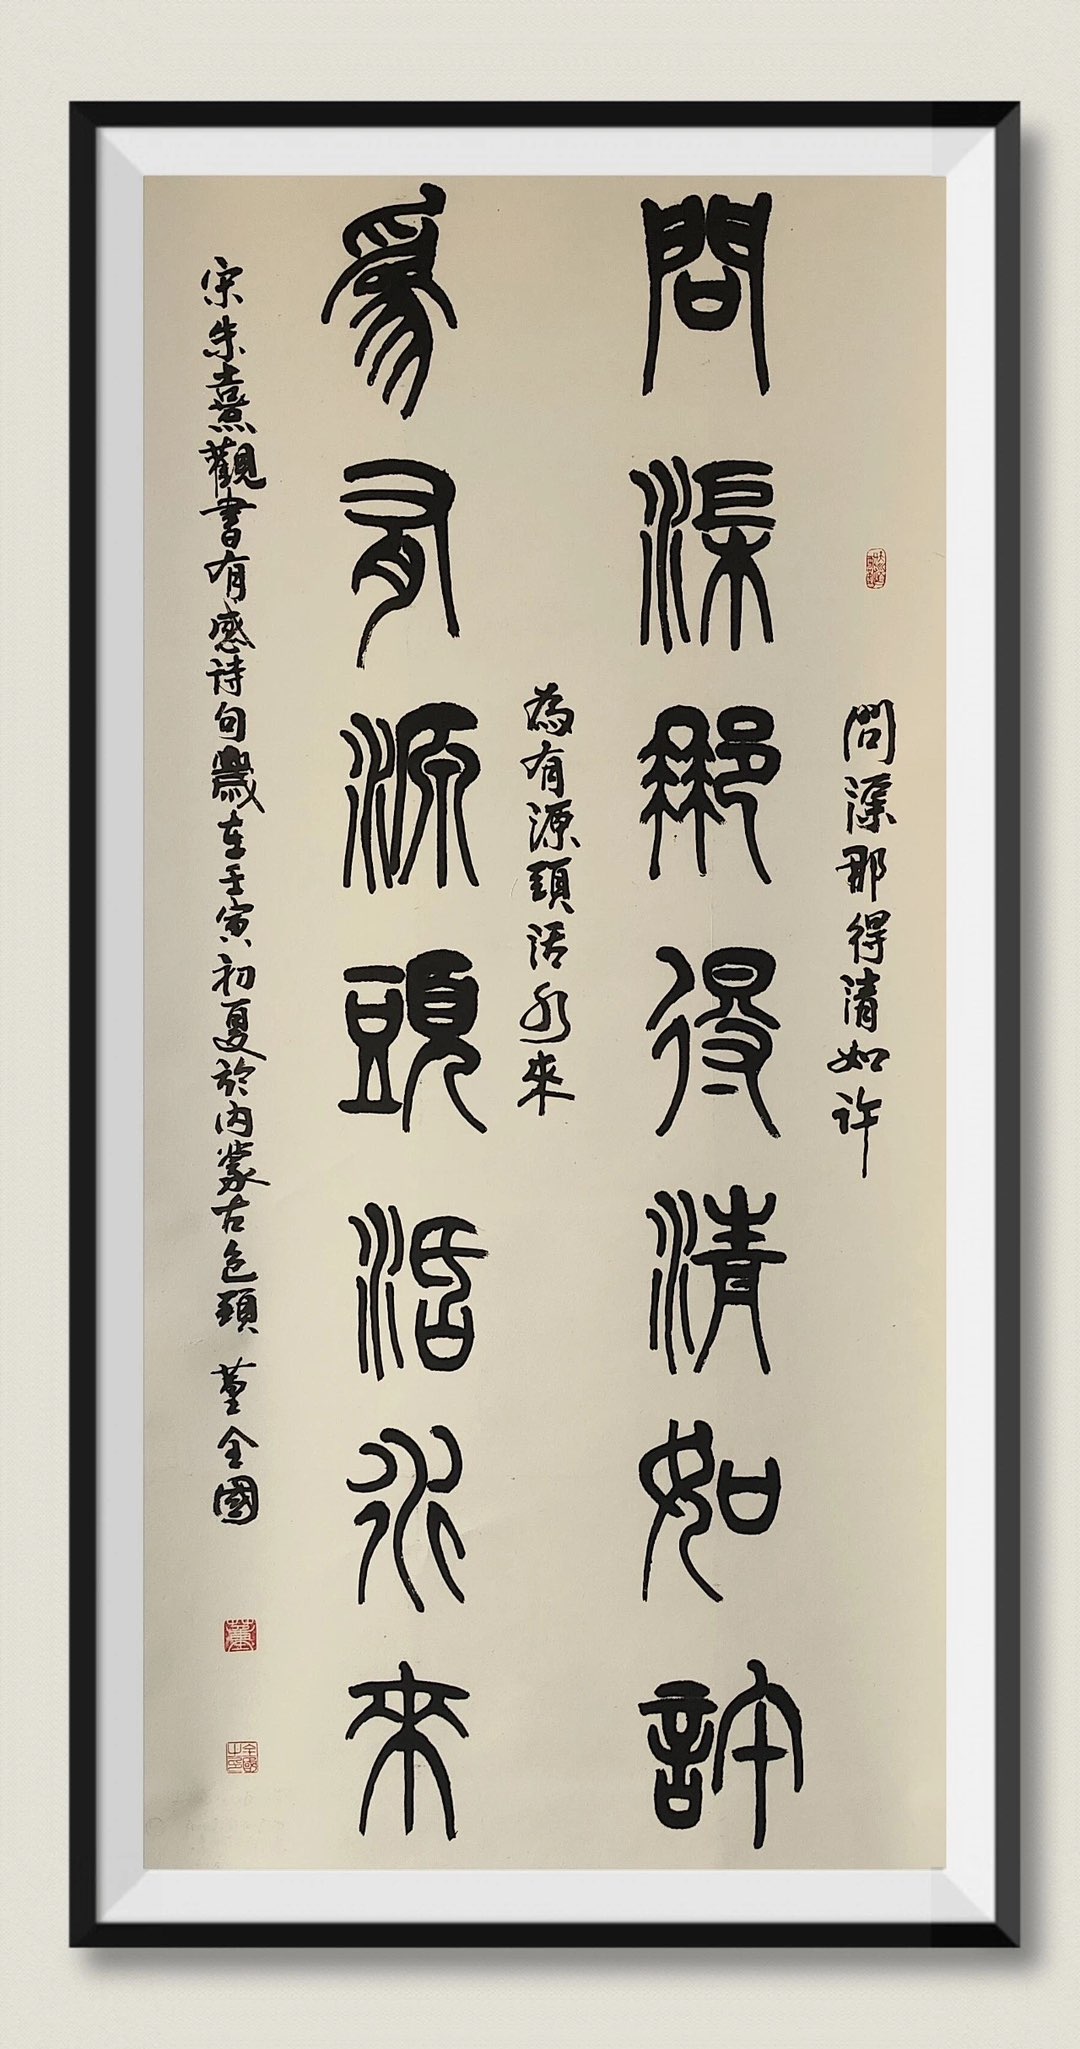 問渠那得清如許
問渠那得清如許
為有源頭活水來
為有源頭活水來
宋朱熹觀書有感詩句歲在壬寅初夏於內蒙古包頭 董全國
董
全國之印